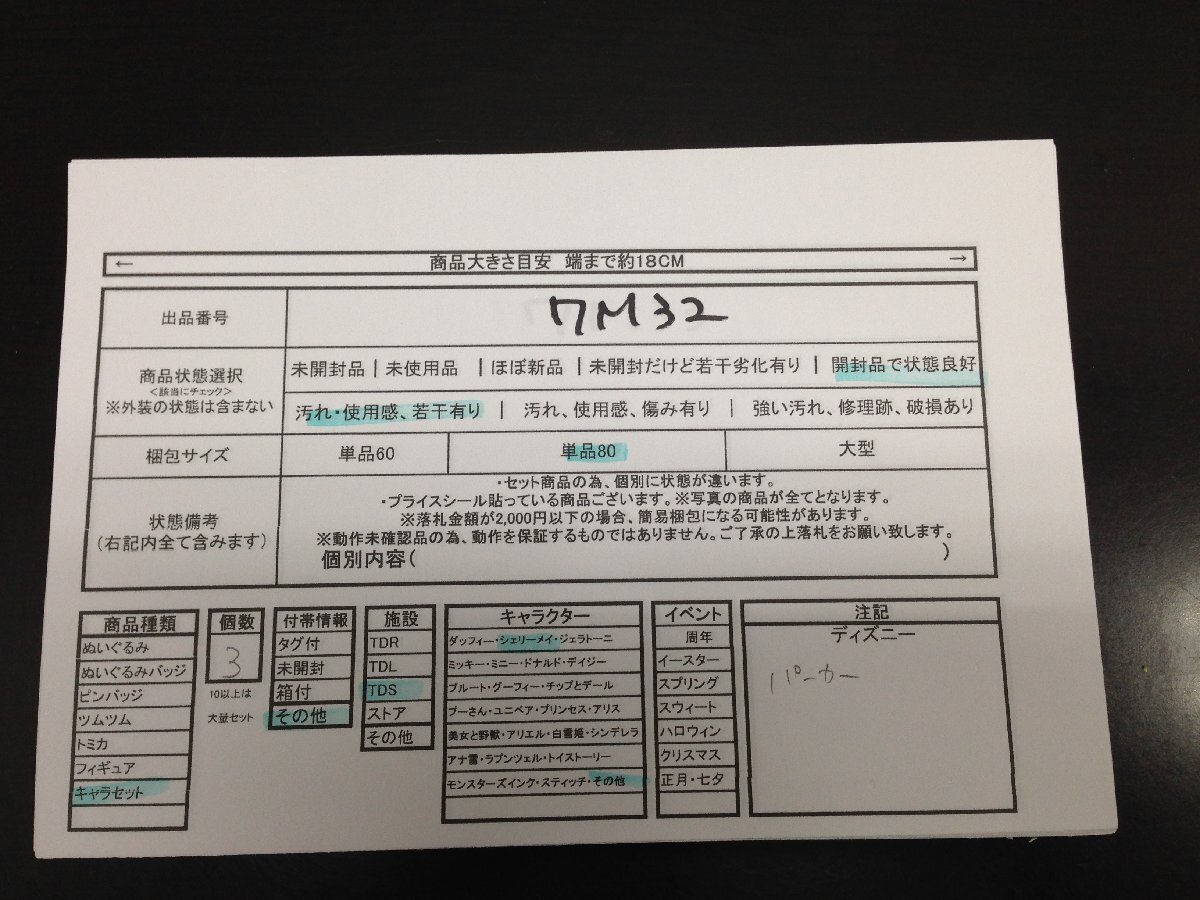 ← 商品大きさ目安 端まで約18CM →
出品番号 7M32
商品状態選択
<該当にチェック>
※外装の状態は含まない
未開封品 | 未使用品 | ほぼ新品 | 未開封だけど若干劣化有り | 開封品で状態良好
汚れ・使用感、若干有り | 汚れ、使用感、傷み有り | 強い汚れ、修理跡、破損あり
梱包サイズ 単品60 単品80 大型
状態備考
(右記内全て含みます)
・セット商品の為、個別に状態が違います。
・プライスシール貼っている商品ございます。※写真の商品が全てとなります。
※落札金額が2,000円以下の場合、簡易梱包になる可能性があります。
※動作未確認品の為、動作を保証するものではありません。ご了承の上落札をお願い致します。
個別内容( )
商品種類
ぬいぐるみ
ぬいぐるみバッジ
ピンバッジ
ツムツム
トミカ
フィギュア
キャラセット
個数
3
10以上は
大量セット
付帯情報
タグ付
未開封
箱付
その他
施設
TDR
TDL
TDS
ストア
その他
キャラクター
ダッフィー・シェリーメイ・ジェラトーニ
ミッキー・ミニー・ドナルド・デイジー
プルート・グーフィー・チップとデール
プーさん・ユニベア・プリンセス・アリス
美女と野獣・アリエル・白雪姫・シンデレラ
アナ雪・ラプンツェル・トイストーリー
モンスターズインク・スティッチ・その他
イベント
周年
イースター
スプリング
スウィート
ハロウィン
クリスマス
正月・七夕
注記
ディズニー
パーカー